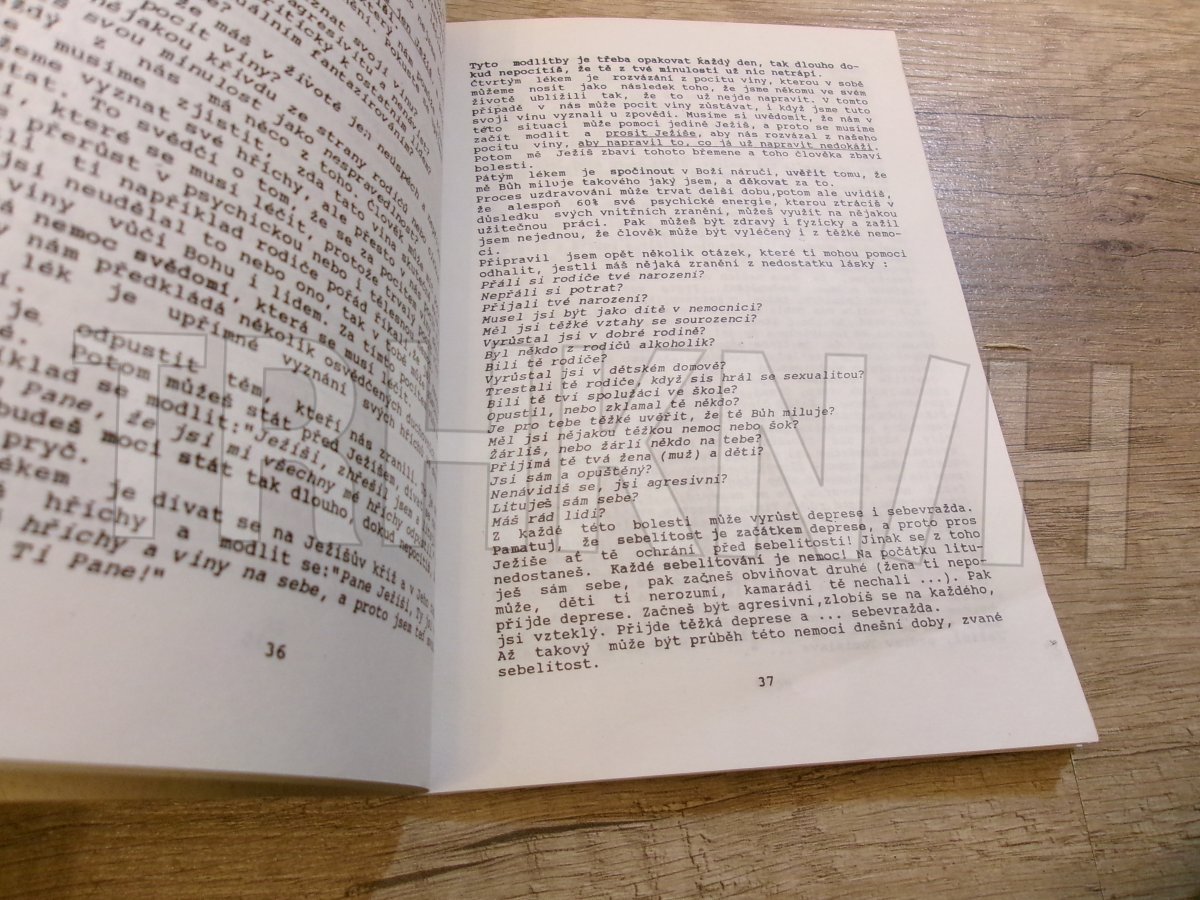 znat svoji vinu.
agresivitou a nenávistí
přítický k ostatním lidem
sexuálním fantazírováním?
že máš v životě jen neúspěch
pocit viny?
nějakou křivdu ze strany rodičů
svou minulost jako nespravedlnost?
z nás má něco z toho člověka?
musíme zjistit, zda tato vina skutečně
vyznat své hříchy, ale přesto v nás
To svědčí o tom, že se pocitem
které se musí léčit, protože trvalý pocit
přerůst v psychickou nebo i tělesnou
například rodiče pořád říkali, že
jsi neudělal to nebo ono, tak v tobě mohou
viny vůči Bohu i lidem. Za tímto pocitem
nemoc svědomí, která se musí léčit.
nám předkládá několik osvědčených
lék je upřímné vyznání svých hříchů
je odpustit těm, kteří nás zranili.
Potom můžeš stát před Ježíšem,
příklad se modlit:"Ježíši, zhřešil jsem a
Pane, že jsi mi všechny mé hříchy odpustil
budeš moci stát tak dlouho, dokud nepocítíš
pryč.
lékem je dívat se na Ježíšův kříž a v Jeho
hříchy a modlit se:"Pane Ježíši, Ty
hříchy a viny na sebe, a proto jsem teď
Ti Pane!"
36
Tyto modlitby je třeba opakovat každý den, tak dlouho do-
kud nepocítíš, že tě z tvé minulosti už nic netrápí.
Čtvrtým lékem je rozvázání z pocitu viny, kterou v sobě
můžeme nosit jako následek toho, že jsme někomu ve svém
životě ublížili tak, že to už nejde napravit. V tomto
případě v nás může pocit viny zůstávat, i když jsme tuto
svoji vinu vyznali u zpovědi. Musíme si uvědomit, že nám v
této situaci může pomoci jedině Ježíš, a proto se musíme
začít modlit a prosit Ježíše, aby nás rozvázal z našeho
pocitu viny, aby napravil to, co já už napravit nedokáži.
Potom mě Ježíš zbaví tohoto břemene a toho člověka zbaví
bolesti.
Pátým lékem je spočinout v Boží náruči, uvěřit tomu, že
mě Bůh miluje takového jaký jsem, a děkovat za to.
Proces uzdravování může trvat delší dobu,potom ale uvidíš,
že alespoň 60% své psychické energie, kterou ztrácíš v
důsledku svých vnitřních zranění, můžeš využít na nějakou
užitečnou práci. Pak můžeš být zdravý i fyzicky a zažil
jsem nejednou, že člověk může být vyléčený i z těžké nemo-
ci.
Připravil jsem opět několik otázek, které ti mohou pomoci
odhalit, jestli máš nějaká zranění z nedostatku lásky :
Přáli si rodiče tvé narození?
Nepřáli si potrat?
Přijali tvé narození?
Musel jsi být jako dítě v nemocnici?
Měl jsi těžké vztahy se sourozenci?
Vyrůstal jsi v dobré rodině?
Byl někdo z rodičů alkoholik?
Bili tě rodiče?
Vyrůstal jsi v dětském domově?
Trestali tě rodiče, když sis hrál se sexualitou?
Bili tě tví spolužáci ve škole?
Opustil, nebo zklamal tě někdo?
Je pro tebe těžké uvěřit, že tě Bůh miluje?
Měl jsi nějakou těžkou nemoc nebo šok?
Žárlíš, nebo žárlí někdo na tebe?
Přijímá tě tvá žena (muž) a děti?
Jsi sám a opuštěný?
Nenávidíš se, jsi agresivní?
Lituješ sám sebe?
Máš rád lidi?
Z každé této bolesti může vyrůst deprese i sebevražda.
Pamatuj, že sebelítost je začátkem deprese, a proto pros
Ježíše ať tě ochrání před sebelítostí! Jinak se z toho
nedostaneš. Každé sebelitování je nemoc! Na počátku litu-
ješ sám sebe, pak začneš obviňovat druhé (žena ti nepo-
může, děti ti nerozumí, kamarádi tě nechali ...). Pak
příjde deprese. Začneš být agresivní,zlobíš se na každého,
jsi vzteklý. Přijde těžká deprese a ... sebevražda.
Až takový může být průběh této nemoci dnešní doby, zvané
sebelítost.
37
TRHKNIH